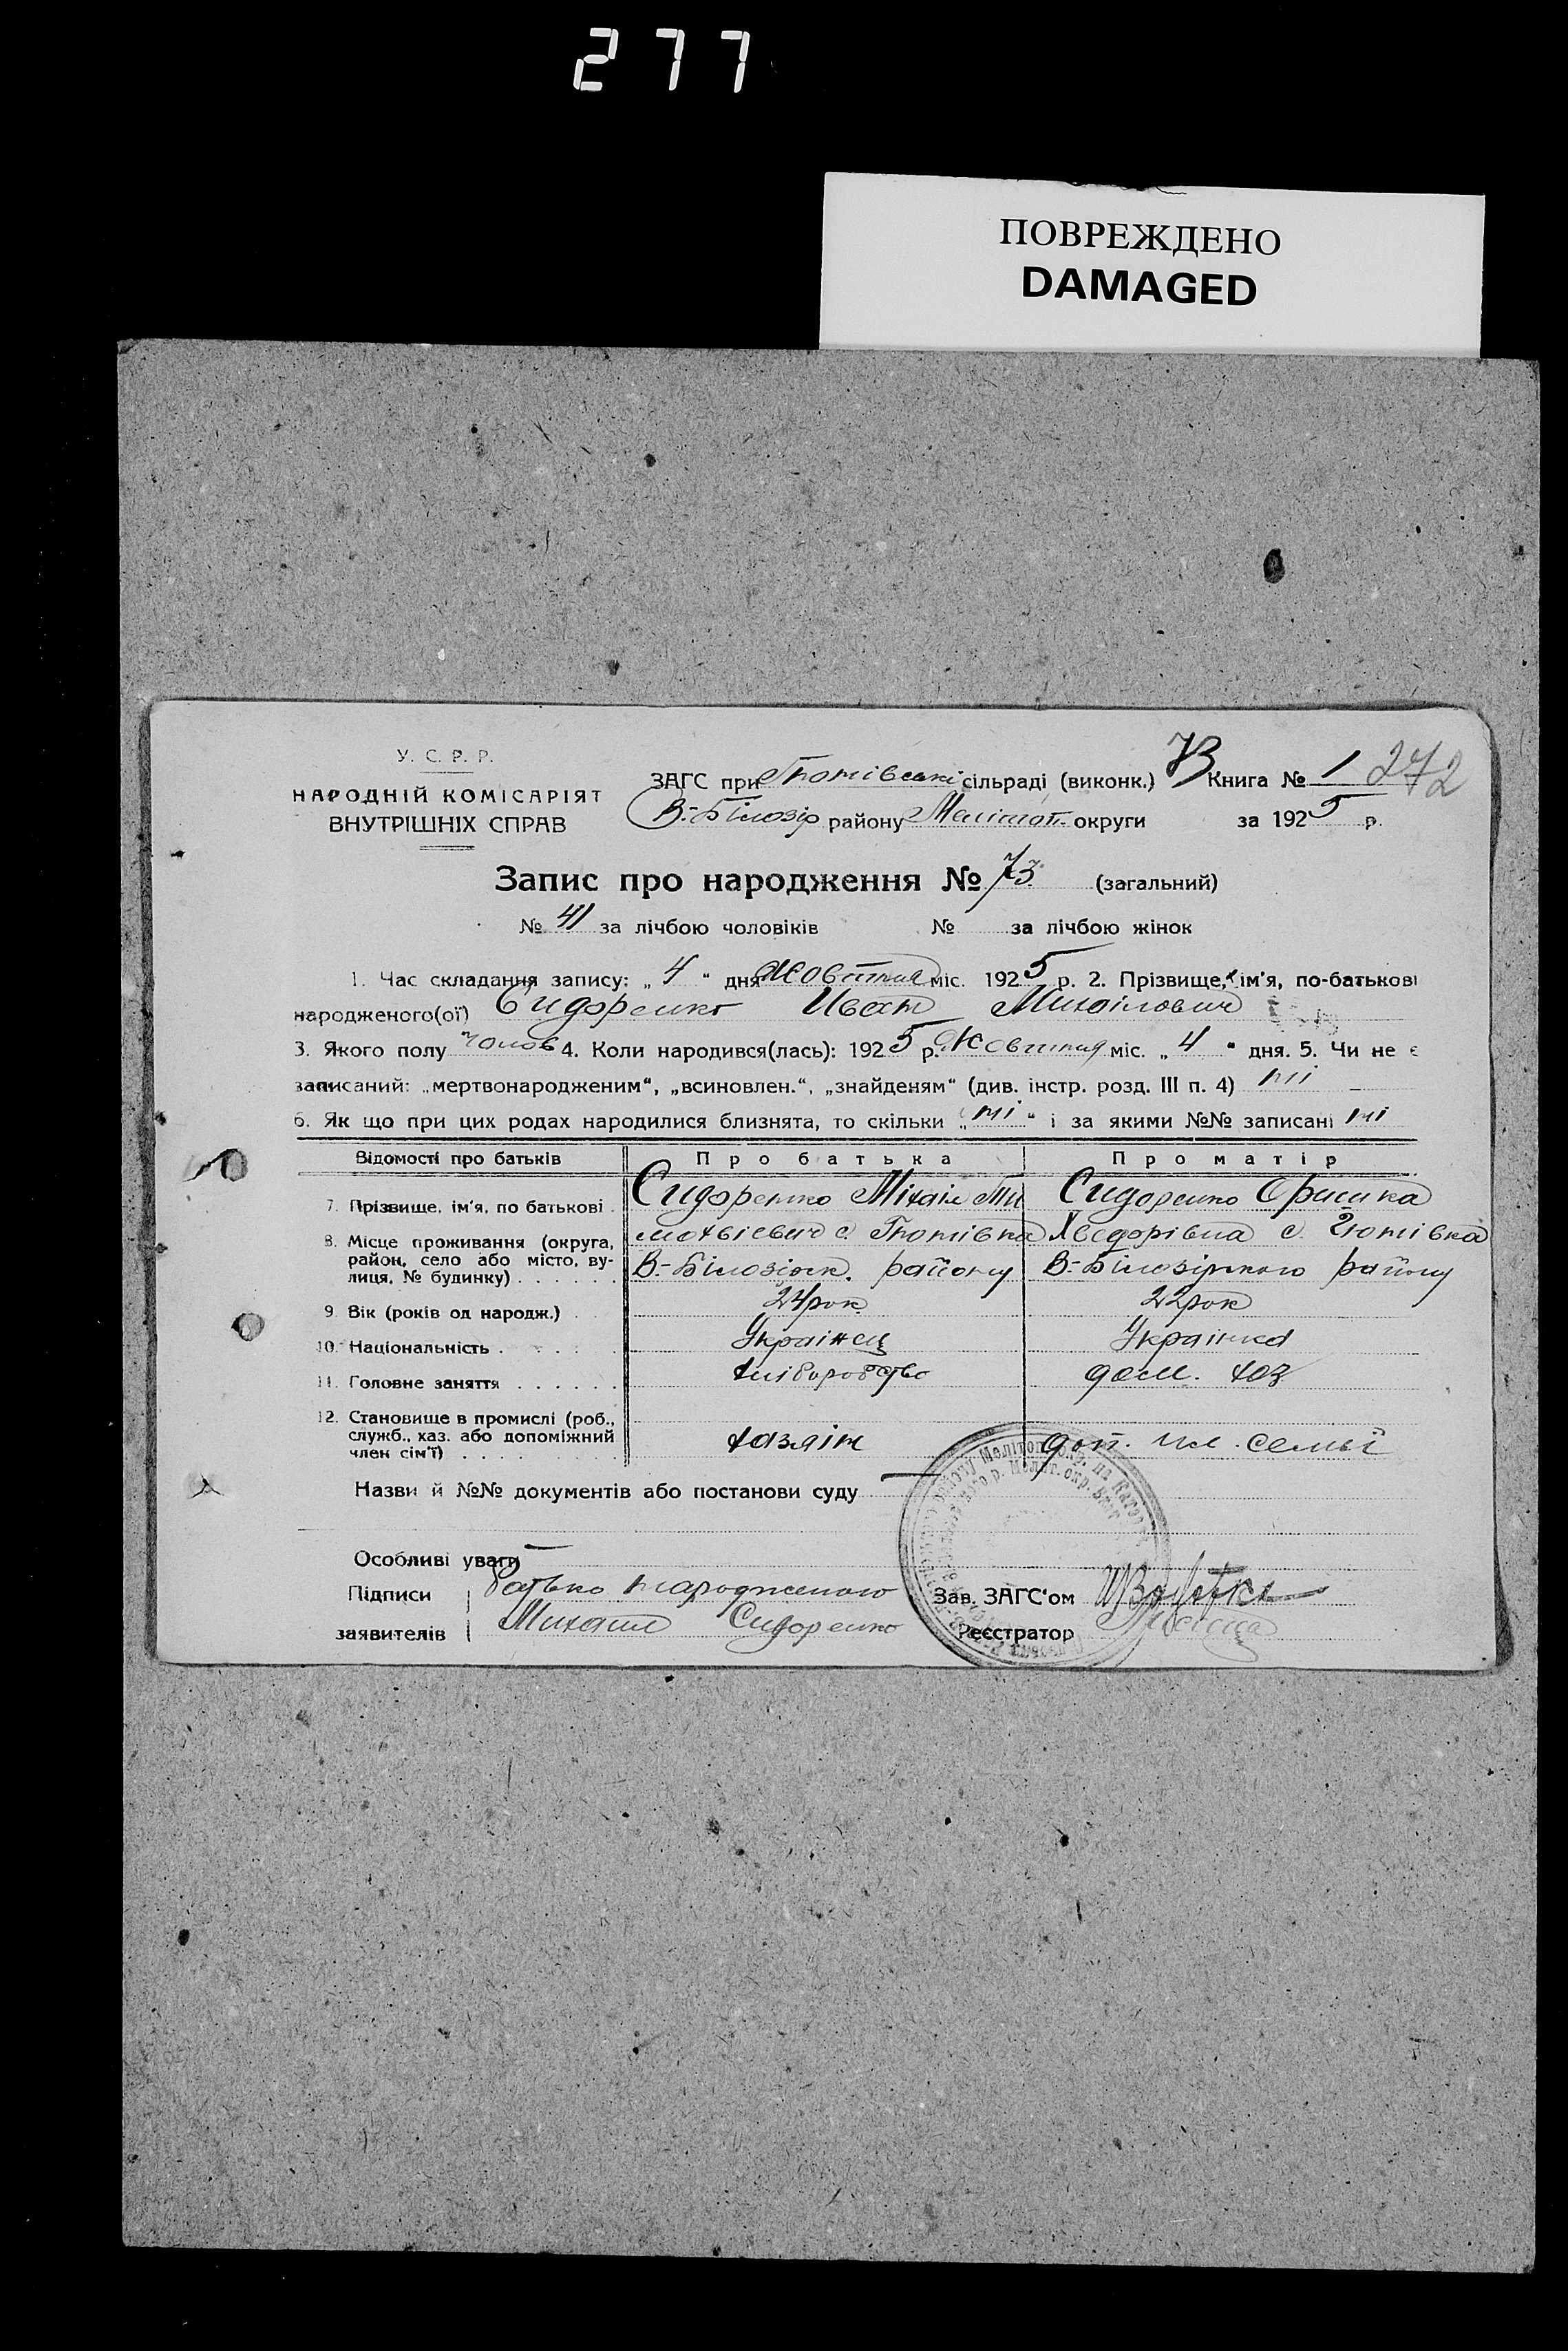 277
ПОВРЕЖДЕНО
DAMAGED
У. С. Р. Р.
НАРОДНІЙ КОМІСАРІЯТ
ВНУТРІШНІХ СПРАВ
ЗАГС при сільраді (виконк.) 73 Книга № 1 272
В.-Білозір району Мелітоп. округи за 1925 р.
Запис про народження № 73. (загальний)
№ 41 за лічбою чоловіків № за лічбою жінок
1. Час складання запису: „ 4 “ дня Жовтня міс. 1925 р. 2. Прізвище, ім'я, по-батькові
народженого(ої) Сидоренко Иван Михайлович
3. Якого полу чолов 4. Коли народився(лась): 1925 р. Жовтня міс. „ 4 “ дня. 5. Чи не є
записаний: „мертвонародженим“, „всиновлен.“, „знайденям“ (див. інстр. розд. III п. 4) ні
6. Як що при цих родах народилися близнята, то скільки „ ні “ і за якими №№ записані ні
Відомості про батьків Про батька Про матір
7. Прізвище, ім'я, по батькові Сидоренко Міхаіл Ти Сидоренко Оришка
мохвієвич с. Хведорівна с.
8. Місце проживання (округа, район, село або місто, вулиця, № будинку) В.-Білозірск. району В-Білозірського району
9. Вік (років од народж.) 24 рок. 22 рок
10. Національність Українец Українка
11. Головне заняття хліборобство дом. хоз
12. Становище в промислі (роб., служб., хаз. або допоміжний член сім'ї) хазяін доп. чл. семьї
Назви й №№ документів або постанови суду
Особливі уваги
Підписи батько народженого Зав. ЗАГС'ом
заявителів Михаил Сидоренко Реєстратор